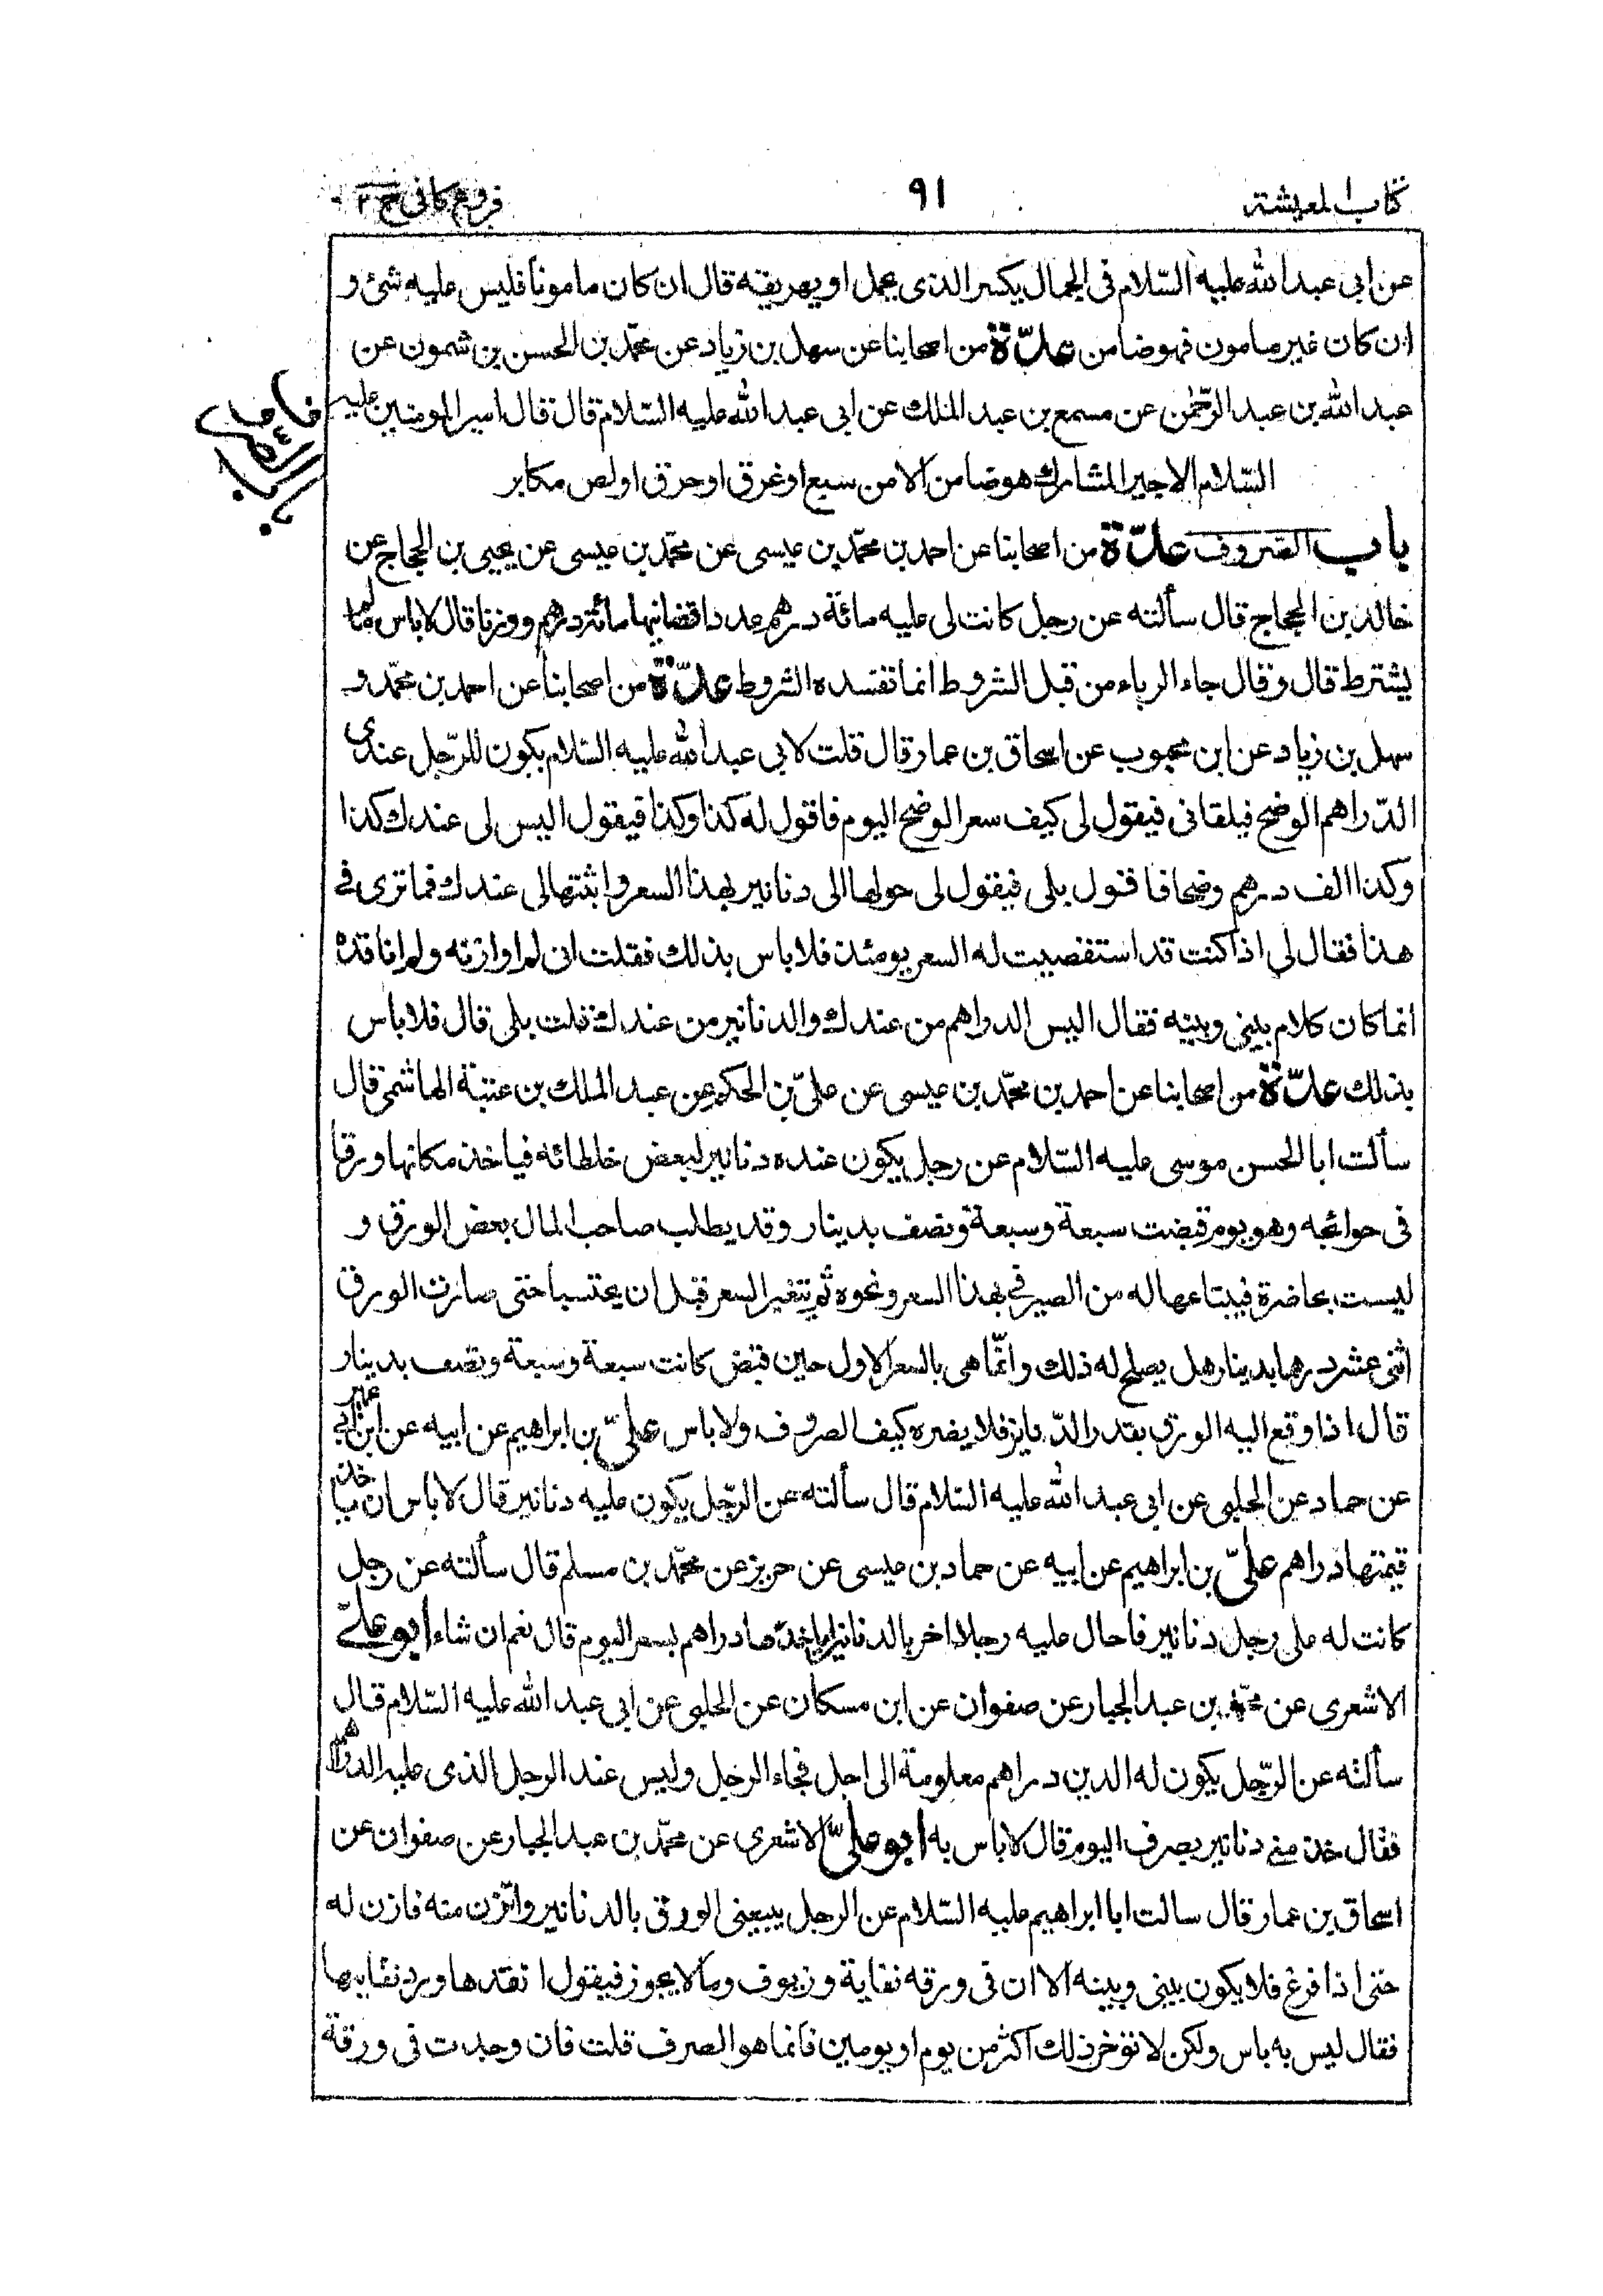 كتاب المعيشة ٩١ فروع كافى ج ٢
عن ابى عبد الله عليه السّلام فى الجمال يكسر الذى يحمل او يهريقه قال ان كان مامونا فليس عليه شئ و
ان كان غير مامون فهو ضامن عدّة من اصحابنا عن سهل بن زياد عن محمّد بن الحسن بن شمون عن
عبد الله بن عبد الرّحمٰن عن مسمع بن عبد الملك عن ابى عبد الله عليه السّلام قال قال امير المومنين عليه
السّلام الاجير المشارك هو ضامن الا من سبع او غرق او حرق او لص مكابر
باب الصّروف عدّة من اصحابنا عن احمد بن محمّد بن عيسى عن محمّد بن عيسى عن يحيى بن الحجاج عن
خالد بن الحجاج قال سألته عن رجل كانت لى عليه مائة درهم عددا قضانيها مائة درهم ووزنا قال لاباس ما لم
يشترط قال وقال جاء الرباء من قبل الشروط انما تفسده الشروط عدّة من اصحابنا عن احمد بن محمّد و
سهل بن زياد عن ابن محبوب عن اسحاق بن عمار قال قلت لابى عبد الله عليه السّلام يكون للرّجل عندى
الدّراهم الوضح فيلقانى فيقول لى كيف سعر الوضح اليوم فاقول له كذا وكذا فيقول اليس لى عندك كذا
وكذا الف درهم وضحا فاقول بلى فيقول لى حولها الى دنانير بهذا السعر واثبتها لى عندك فما ترى فى
هذا فقال لى اذا كنت قد استقصيت له السعر يومئذ فلا باس بذلك فقلت انى لم اوازنه ولم اناقده
انما كان كلام بينى وبينه فقال اليس الدراهم من عندك والدنانير من عندك قلت بلى قال فلا باس
بذلك عدّة من اصحابنا عن احمد بن محمّد بن عيسى عن علىّ بن الحكم عن عبد الملك بن عتبة الهاشمى قال
سألت ابا الحسن موسى عليه السّلام عن رجل يكون عنده دنانير لبعض خلطائه فياخذ مكانها ورقا
فى حوائجه وهو يوم قبضت سبعة وسبعة ونصف بدينار وقد يطلب صاحب المال بعض الورق و
ليست بحاضرة فيبتاعها له من الصيرفى بهذا السعر ونحوه ثم يتغير السعر قبل ان يحتسبا حتى صارت الورق
اثنى عشر درهما بدينار هل يصلح له ذلك وانّما هى بالسعر الاول حين قبض كانت سبعة وسبعة ونصف بدينار
قال اذا وقع اليه الورق بقدر الدّنانير فلا يضره كيف الصروف ولاباس علىّ بن ابراهيم عن ابيه عن ابن ابى عمير
عن حماد عن الحلبى عن ابى عبد الله عليه السّلام قال سألته عن الرّجل يكون عليه دنانير قال لاباس ان ياخذ
قيمتها دراهم علىّ بن ابراهيم عن ابيه عن حماد بن عيسى عن حريز عن محمّد بن مسلم قال سألته عن رجل
كانت له على رجل دنانير فاحال عليه رجلا اخر بالدنانير اياخذها دراهم بسعر اليوم قال نعم ان شاء ابو علىّ
الاشعرى عن محمّد بن عبد الجبار عن صفوان عن ابن مسكان عن الحلبى عن ابى عبد الله عليه السّلام قال
سألته عن الرّجل يكون له الدين دراهم معلومة الى اجل فجاء الرجل وليس عند الرجل الذى عليه الدراهم
فقال خذ منى دنانير بصرف اليوم قال لاباس به ابو علىّ الاشعرى عن محمّد بن عبد الجبار عن صفوان عن
اسحاق بن عمار قال سالت ابا ابراهيم عليه السّلام عن الرجل يبيعنى الورق بالدنانير واتّزن منه فازن له
حتى اذا فرغ فلا يكون بينى وبينه الا ان فى ورقه نفاية وزيوف وما لا يجوز فيقول انتقدها ورد نفايتها
فقال ليس به باس ولكن لا تؤخر ذلك اكثر من يوم او يومين فانما هو الصرف قلت فان وجدت فى ورقة